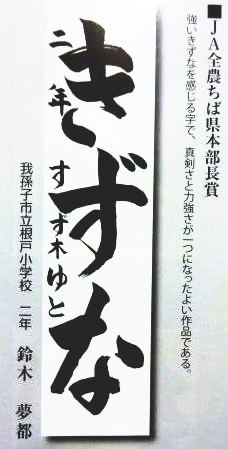 ■JA全農ちば県本部長賞
強いきずなを感じる字で、真剣さと力強さが一つになったよい作品である。
きずな
二年 すず木ゆと
我孫子市立根戸小学校 二年 鈴木 夢都